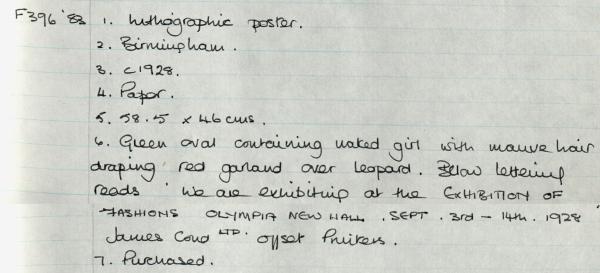 F396 '83 1. Lithographic poster.
2. Birmingham.
3. c1928.
4. Paper.
5. 58.5 x 46 cms.
6. Green oval containing naked girl with mauve hair
draping red garland over leopard. Below lettering
reads 'We are exhibiting at the EXHIBITION OF
FASHIONS OLYMPIA NEW HALL. SEPT. 3rd - 14th. 1928
James Cond LTD. Offset Printers.
7. Purchased.